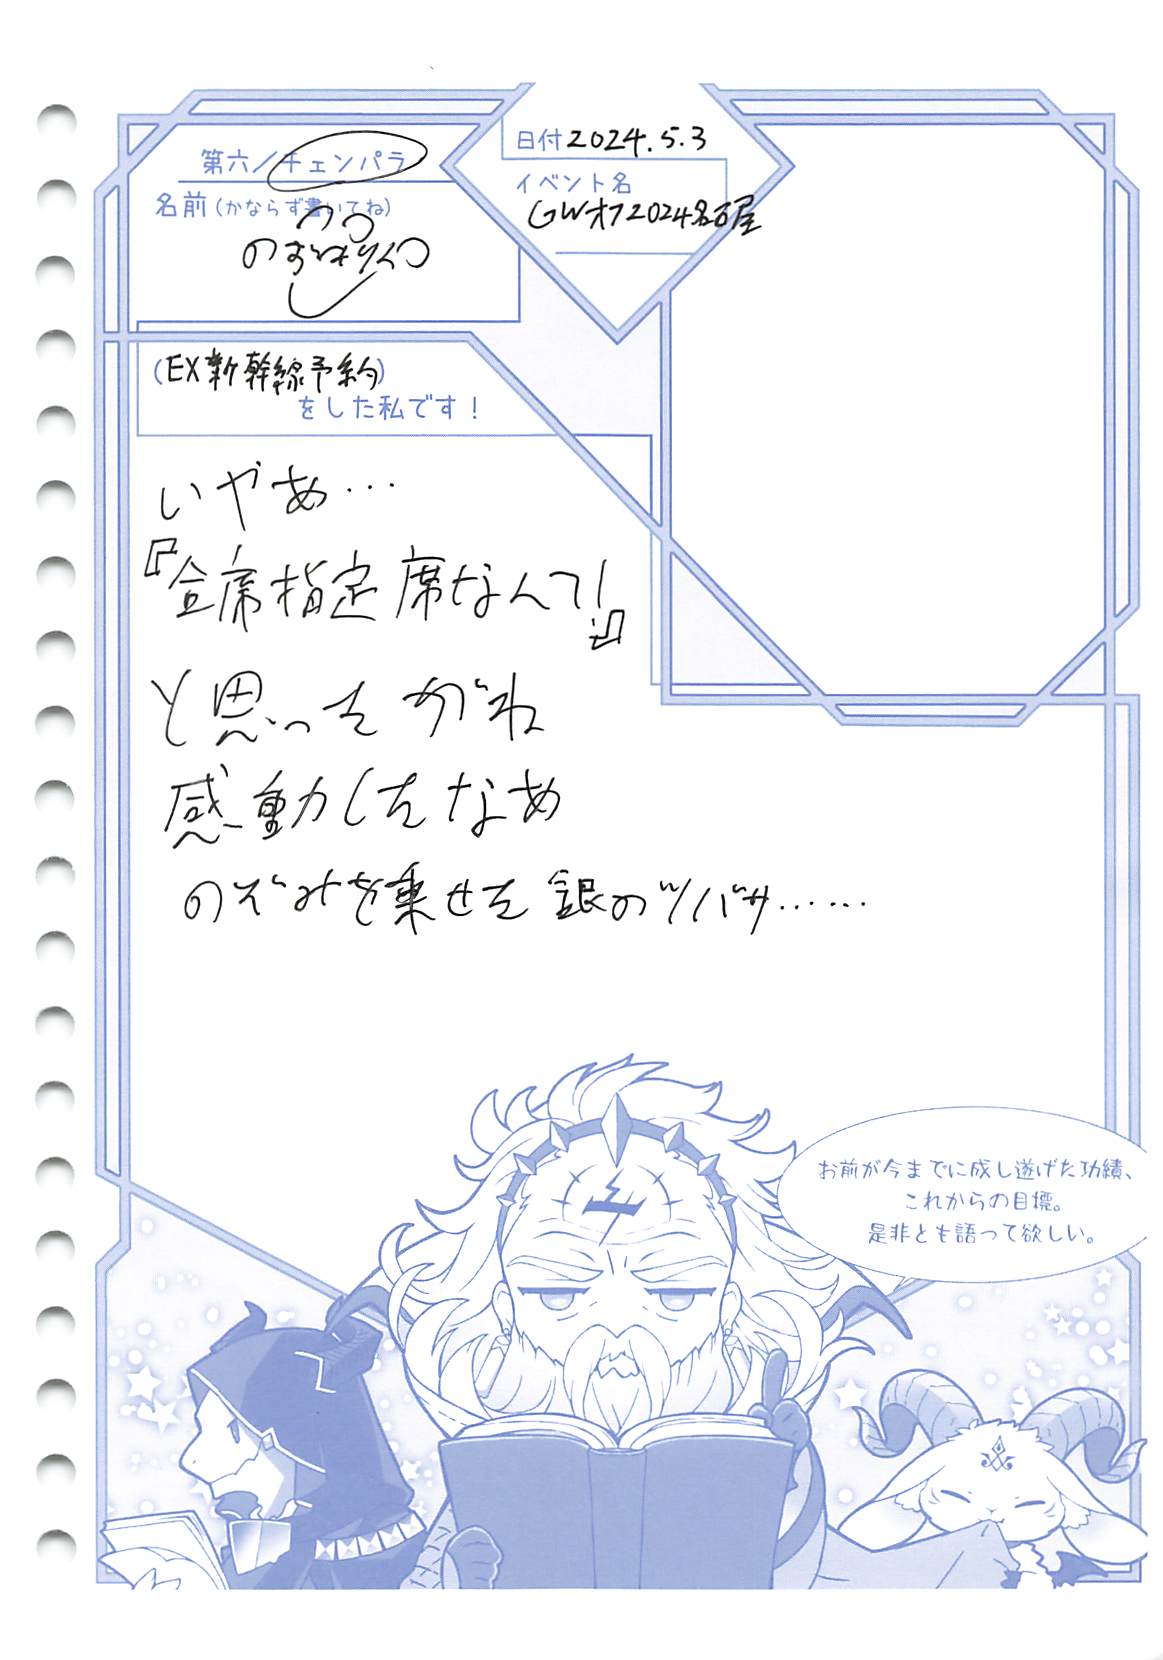 第六／チェンパラ
名前(かならず書いてね)
日付 2024.5.3
イベント名
GWオフ2024名古屋
(EX新幹線予約)
をした私です!
いやあ…
『全席指定席なんて!』
と思ってたがね
感動したなあ
のぞみを乗せた銀のツバサ……
お前が今までに成し遂げた功績、
これからの目標。
是非とも語って欲しい。